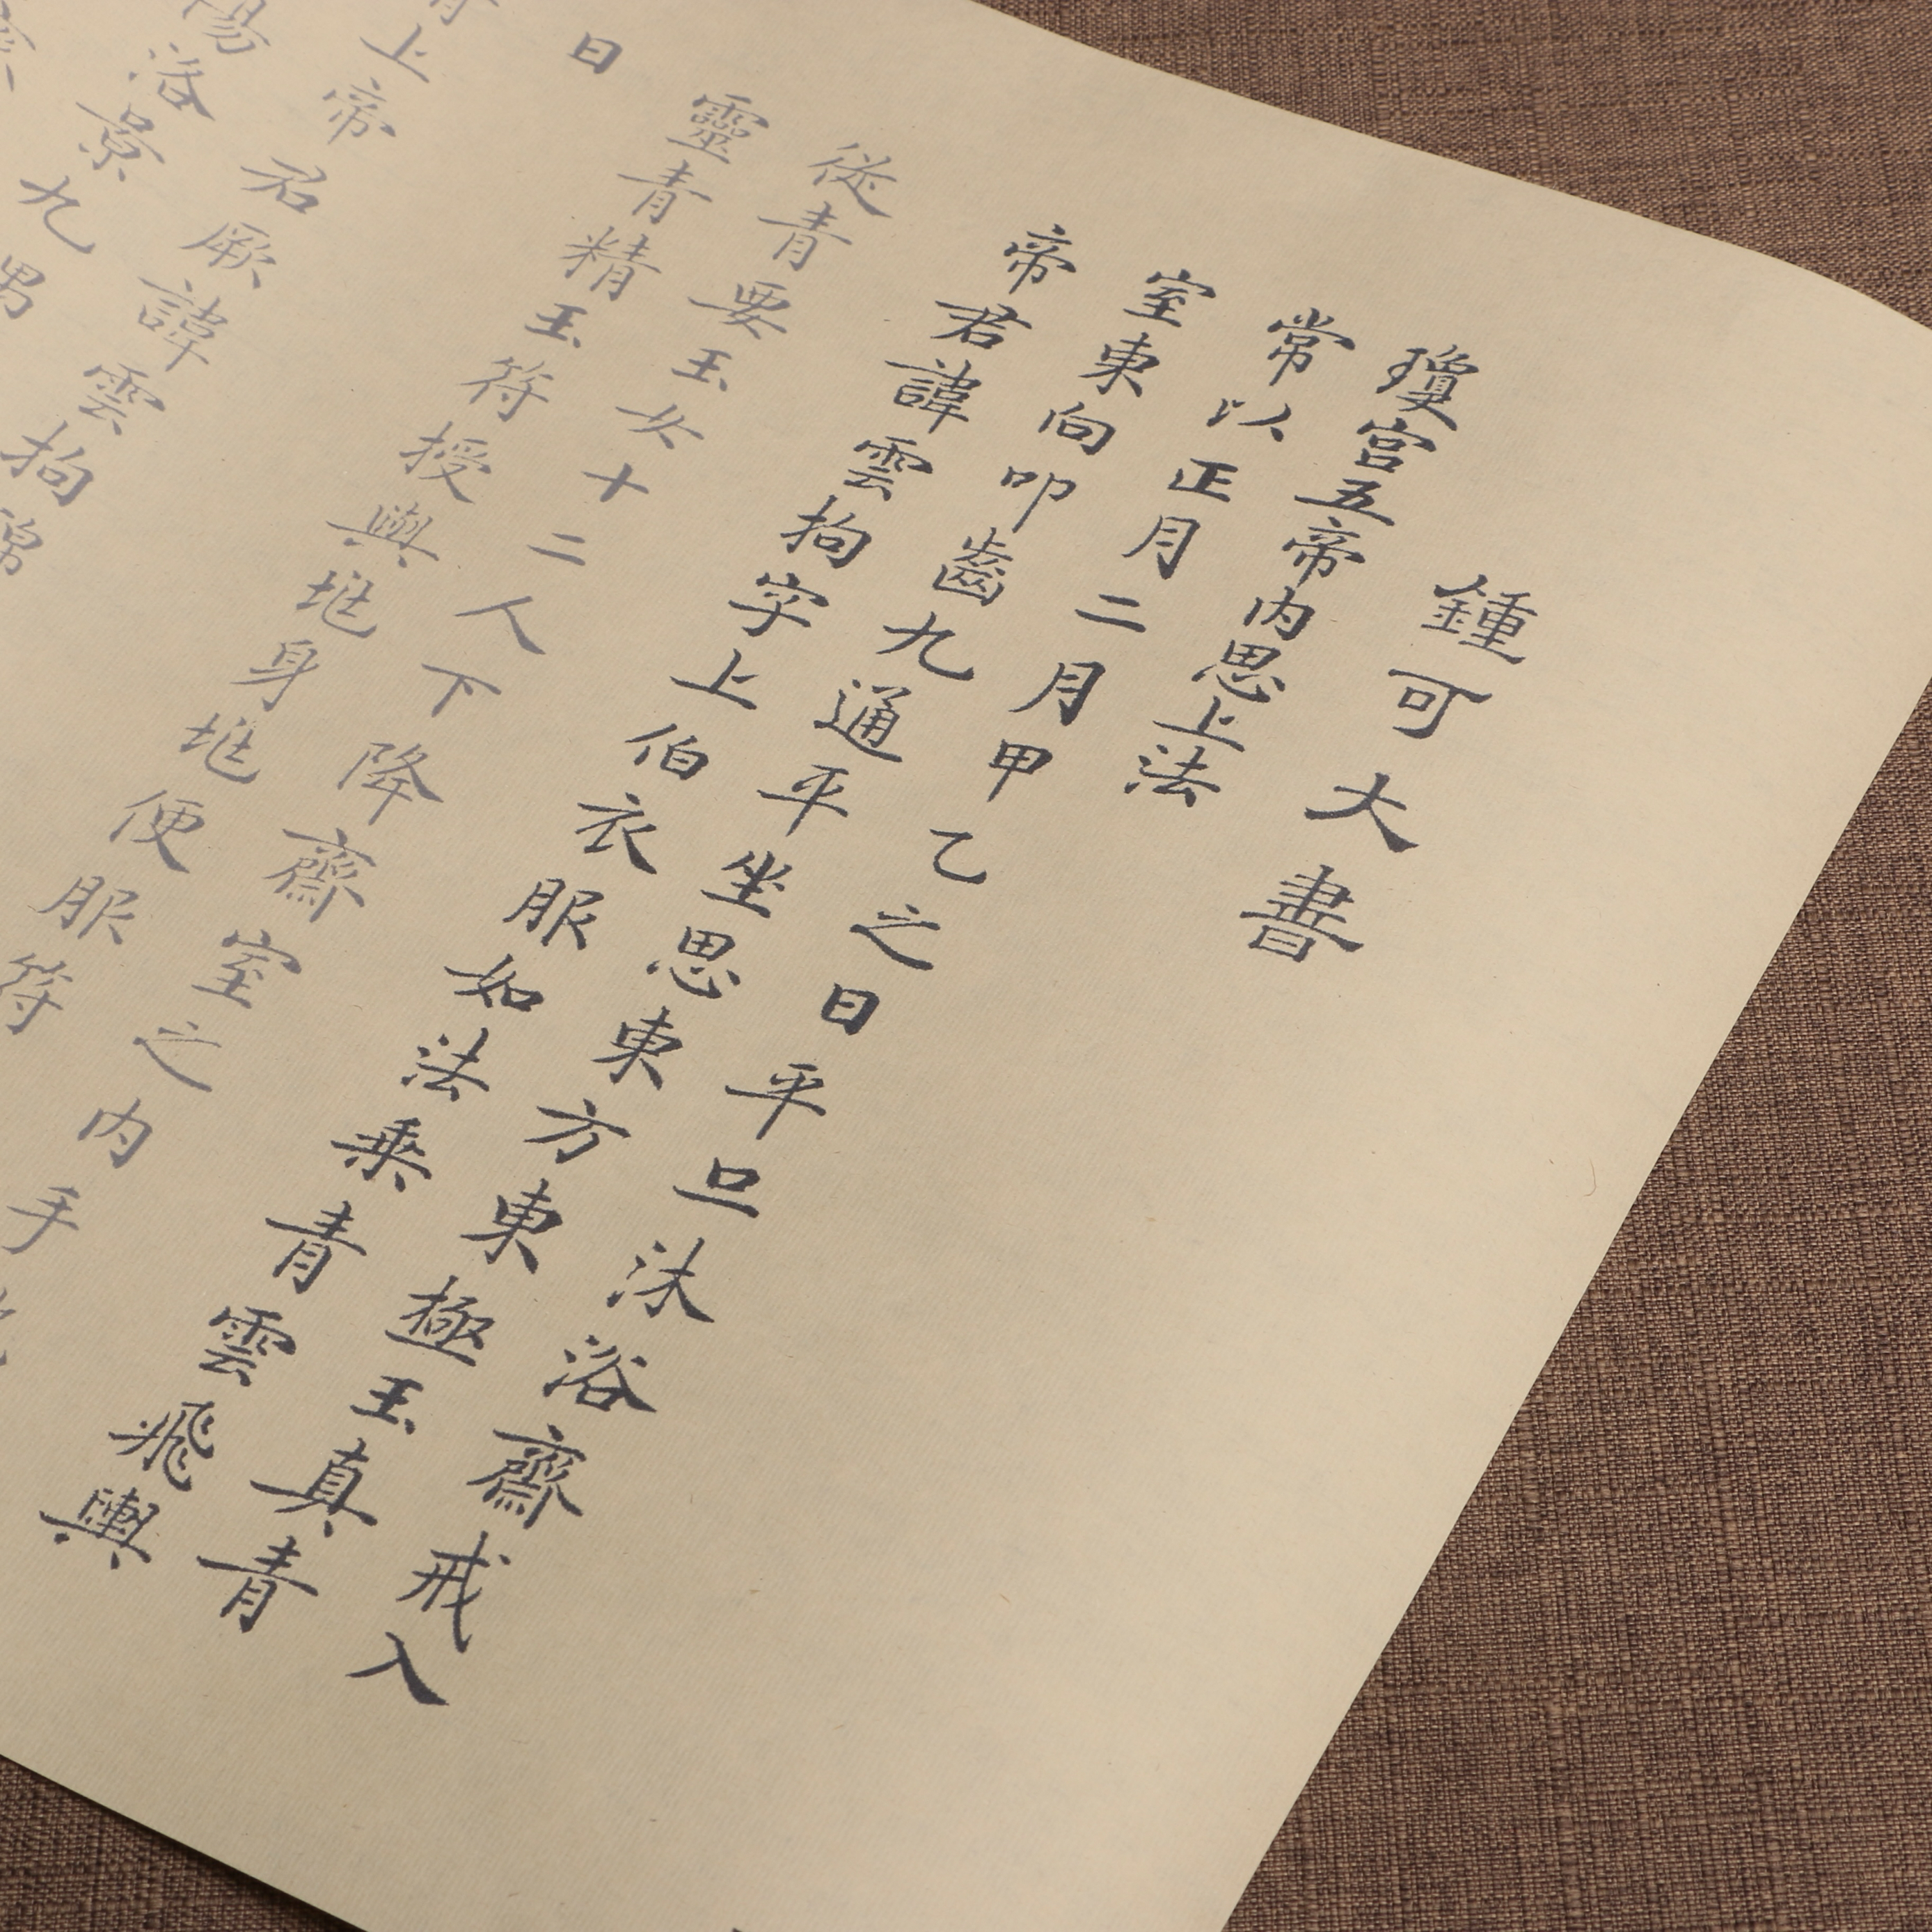 鍾可大書
瓊宮五帝內思上法
常以正月二月甲乙之日平旦沐浴齋戒入
室東向叩齒九通平坐思東方東極玉真青
帝君諱雲拘字上伯衣服如法乘青雲飛輿
從青要玉女十二人下降齋室之內手
靈青精玉符授與兆身兆便服符
曰
青上帝君厥諱雲拘錦
陽洛景九